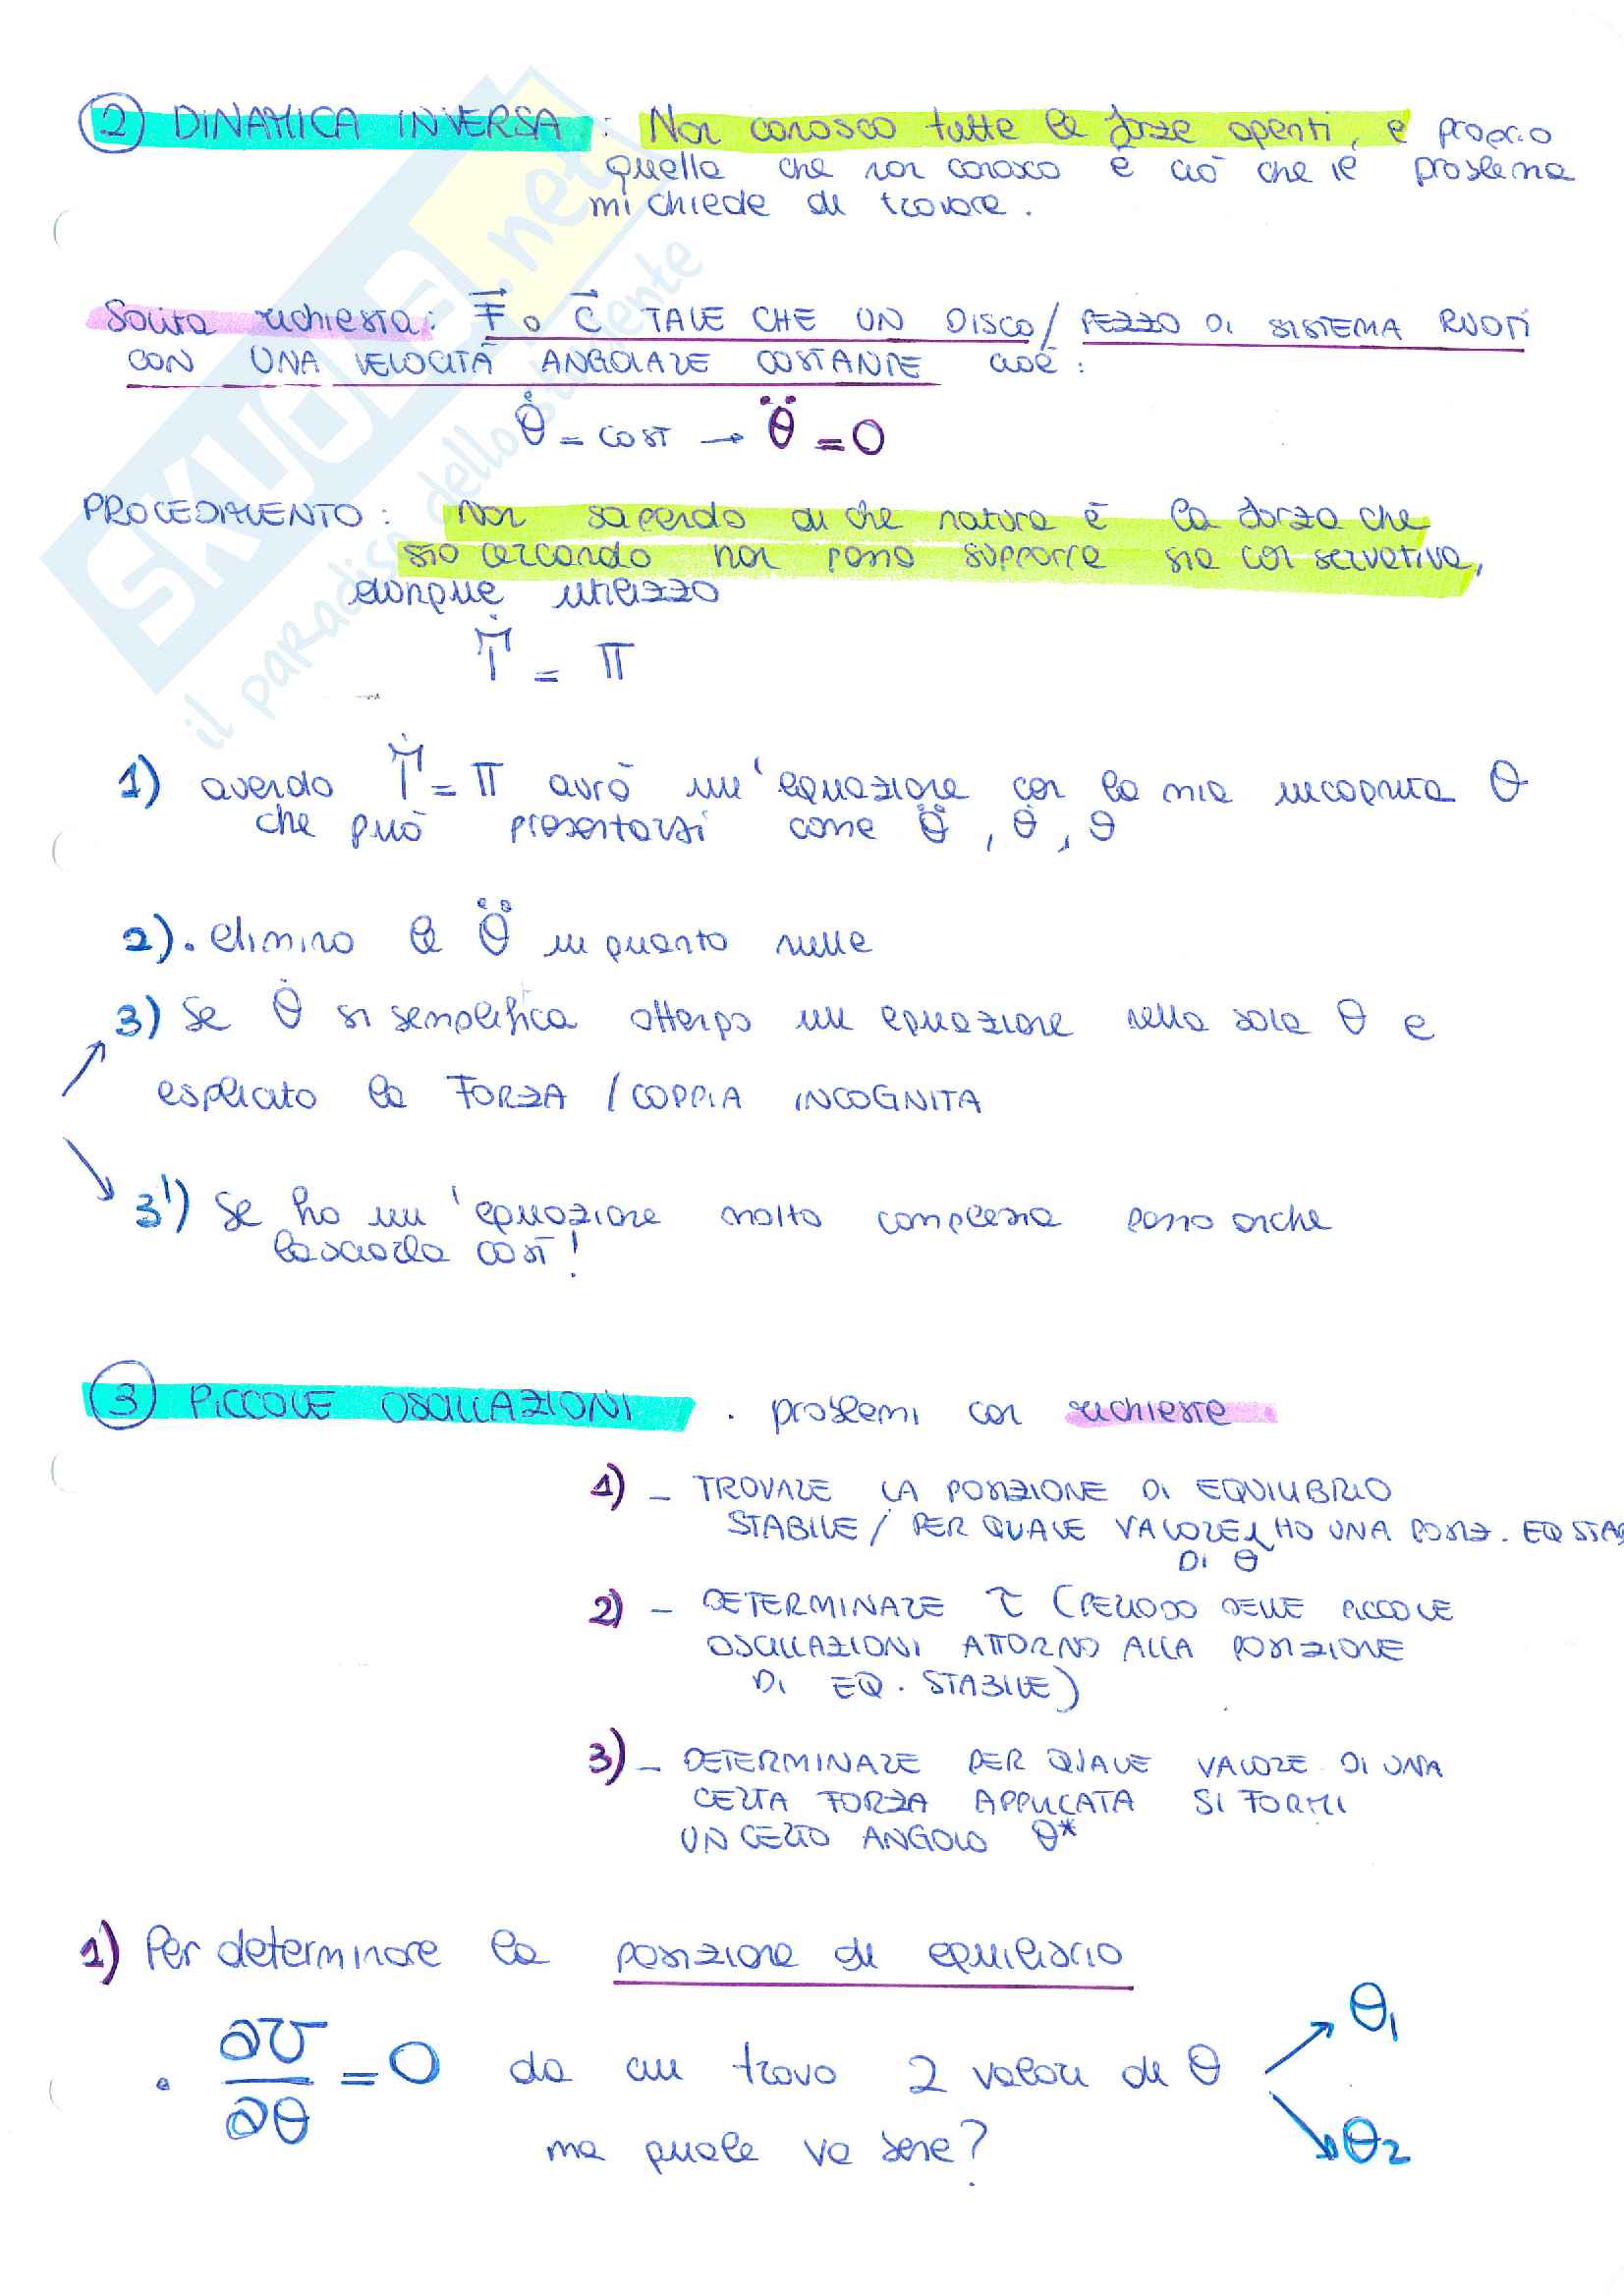 ② DINAMICA INVERSA : Non conosco tutte le forze agenti, e proprio
quella che non conosco è ciò che il problema
mi chiede di trovare.
Solita richiesta: F o C TALE CHE UN DISCO/PEZZO DI SISTEMA RUOTI
CON UNA VELOCITÀ ANGOLARE COSTANTE cioè:
θ̇ = cost → θ̈ = 0
PROCEDIMENTO: Non sapendo di che natura è la forza che
sto cercando non posso supporre sia conservativa,
dunque utilizzo
Ṫ = π
1) avendo Ṫ = π avrò un'equazione con la mia incognita θ
che può presentarsi come θ̈, θ̇, θ
2). elimino le θ̈ in quanto nulle
3) Se θ̇ si semplifica ottengo un equazione nella sola θ e
esplicito la FORZA / COPPIA INCOGNITA
3') Se ho un'equazione molto complessa posso anche
lasciarla così!
③ PICCOLE OSCILLAZIONI . problemi con richieste
1) - TROVARE LA POSIZIONE DI EQUILIBRIO
STABILE / PER QUALE VALORE HO UNA POSIZ. EQ STAB
DI θ
2) - DETERMINARE τ (PERIODO DELLE PICCOLE
OSCILLAZIONI ATTORNO ALLA POSIZIONE
DI EQ. STABILE)
3) - DETERMINARE PER QUALE VALORE DI UNA
CERTA FORZA APPLICATA SI FORMI
UN CERTO ANGOLO θ*
1) Per determinare la posizione di equilibrio
. ∂U/∂θ = 0 da cui trovo 2 valori di θ
θ₁
θ₂
ma quale va bene?
SKUOLA.net
il paradiso dello studente